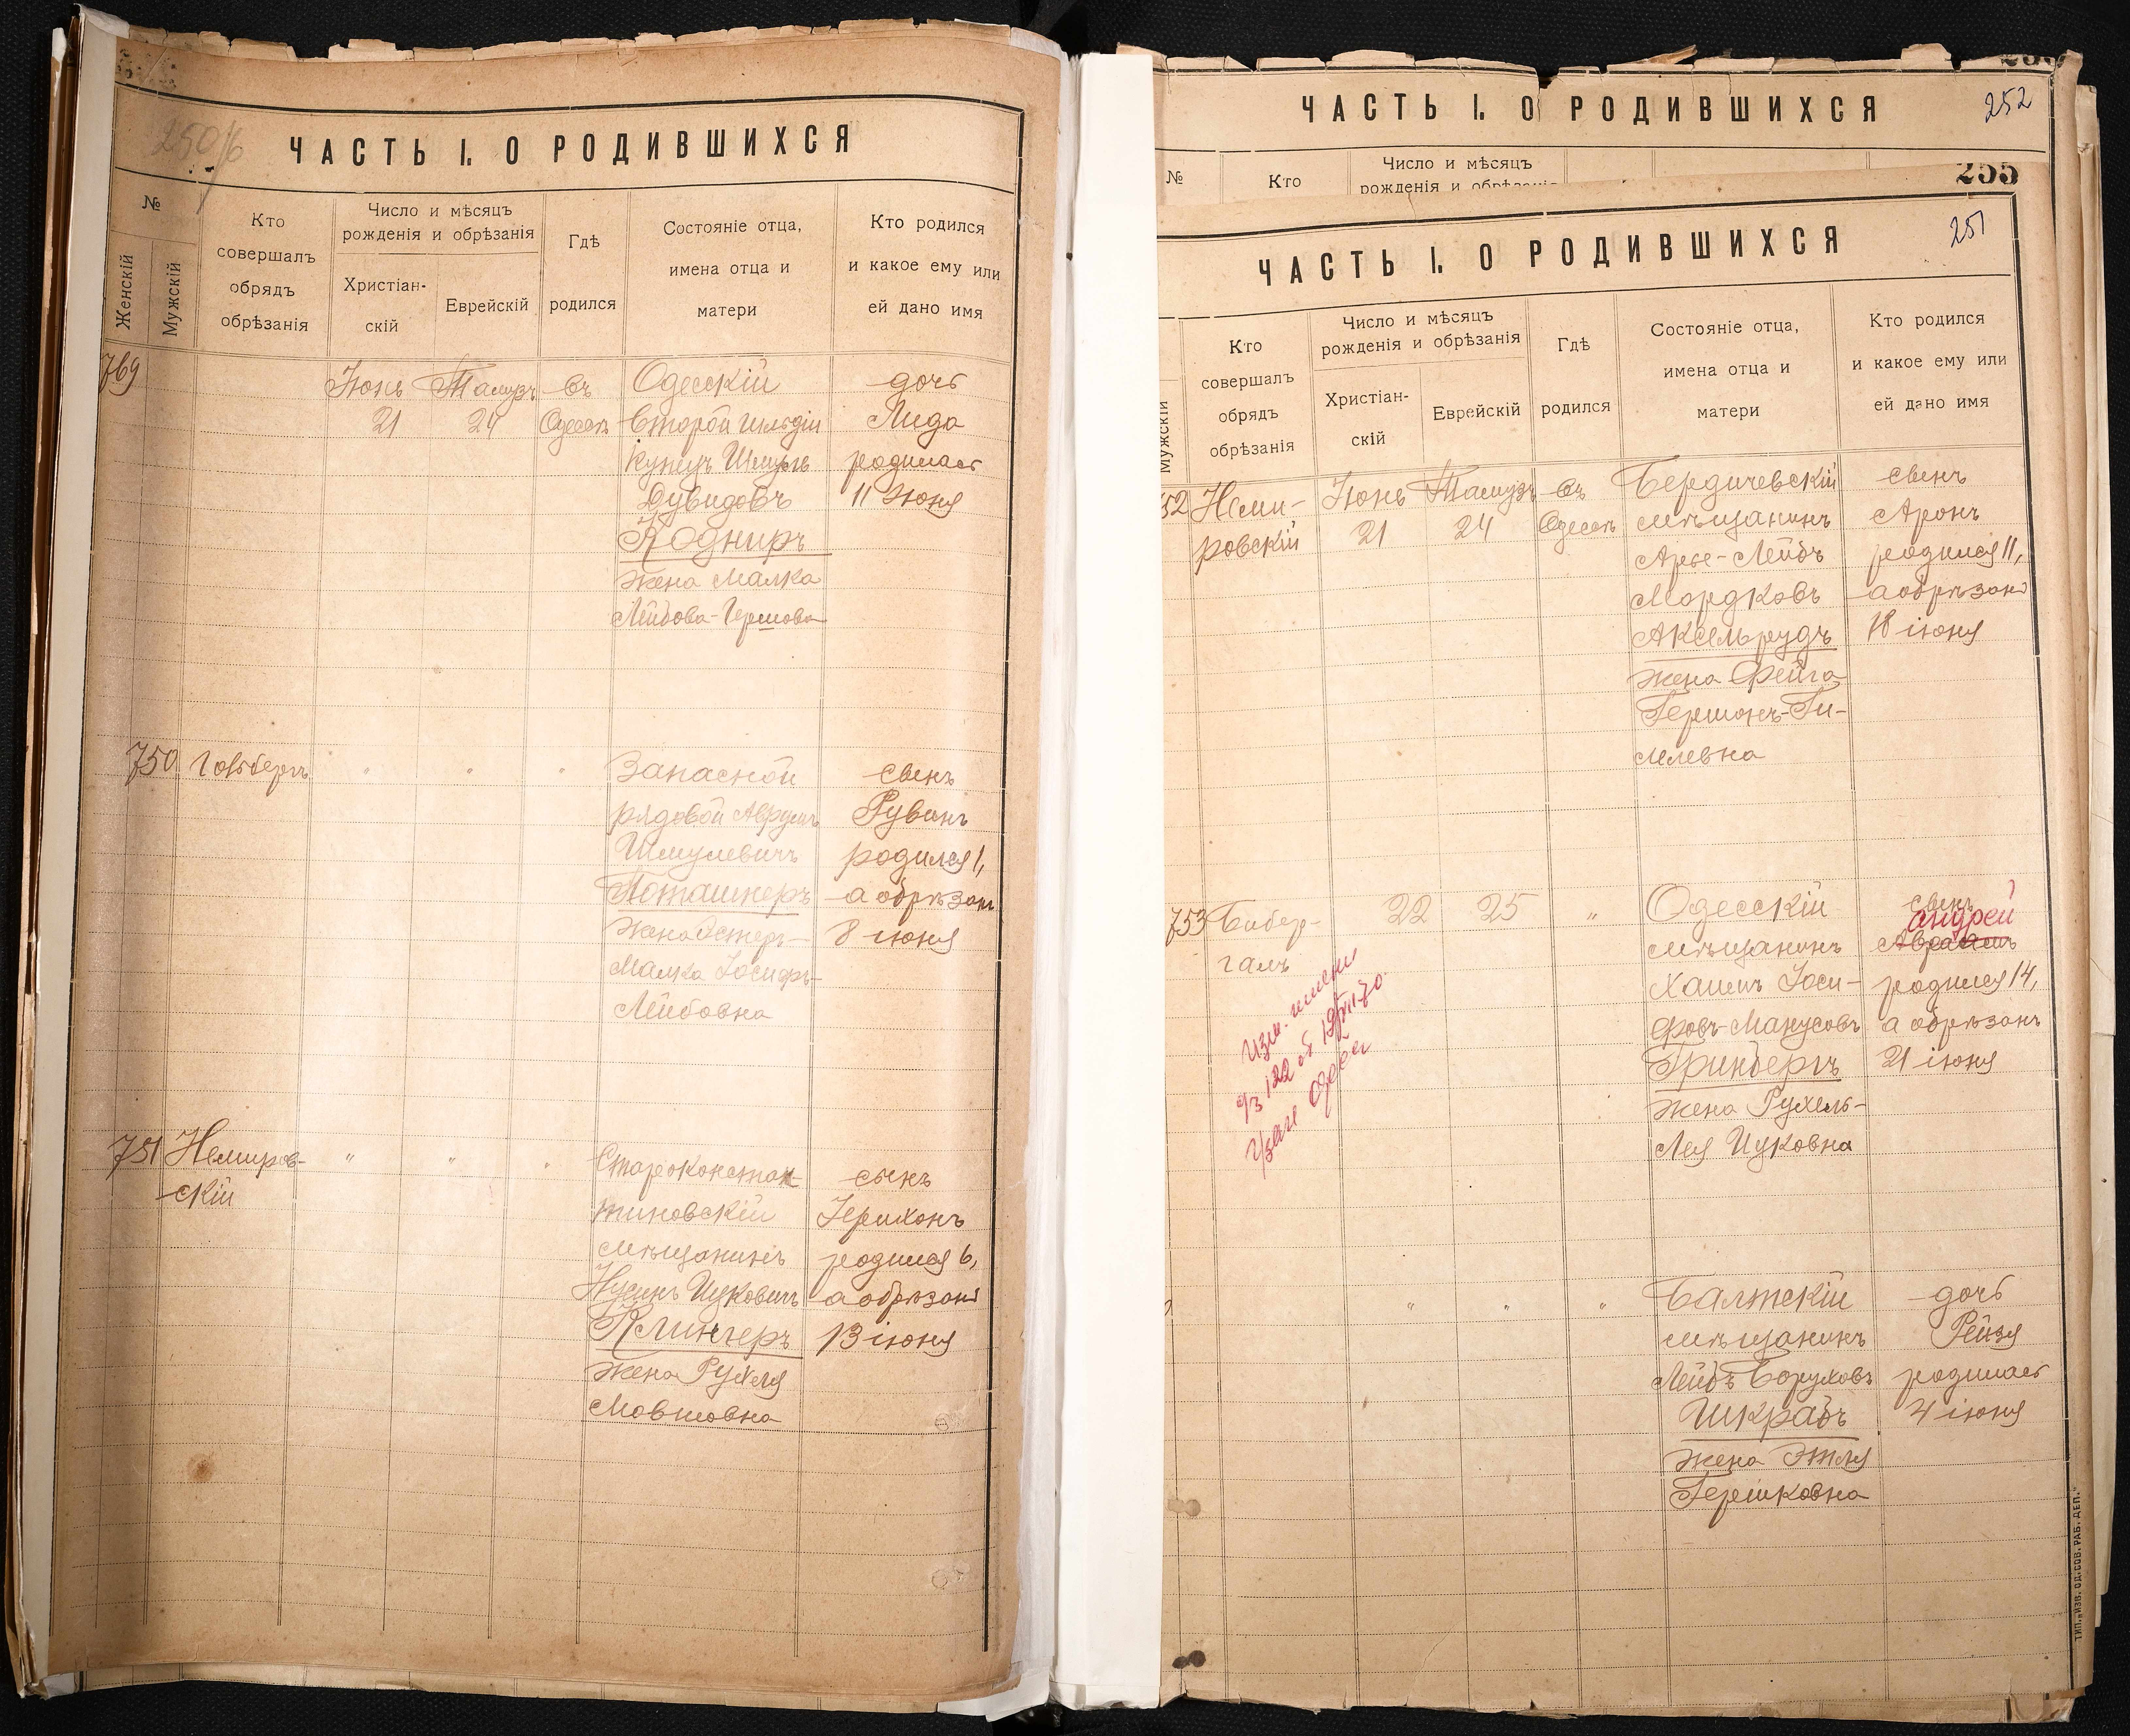 250/б
ЧАСТЬ I. О РОДИВШИХСЯ
№
Женскій
Мужскій
Кто совершалъ обрядъ обрѣзанія
Число и мѣсяцъ рожденія и обрѣзанія
Христіан-
скій
Еврейскій
Гдѣ родился
Состояніе отца, имена отца и матери
Кто родился и какое ему или ей дано имя
769 Іюнь Тамузъ въ Одесскій дочь
21 24 Одессѣ Второй гильдіи Лида
купецъ Шмуль родилась
Дувидовъ 11 Іюня
Кодниръ
жена Малка
Лейбова-Гершова
750 Готбергъ " " " Запасной сынъ
рядовой Аврумъ Рувинъ
Шмулевичъ родился 1,
Поташнеръ а обрѣзанъ
жена Эстеръ- 8 іюня
Малка Іосифъ-
Лейбовна
751 Немиров- " " " Староконстан- сынъ
скій тиновскій Іерихонъ
мѣщанинъ родился 6,
Нусинъ Ицковичъ а обрѣзанъ
Клингеръ 13 іюня
жена Рухля
Мовшовна
ЧАСТЬ I. О РОДИВШИХСЯ 252
№
Кто
Число и мѣсяцъ
рожденія и обрѣзанія
255
251
ЧАСТЬ I. О РОДИВШИХСЯ
Мужскій
Кто совершалъ обрядъ обрѣзанія
Число и мѣсяцъ рожденія и обрѣзанія
Христіан-
скій
Еврейскій
Гдѣ родился
Состояніе отца, имена отца и матери
Кто родился и какое ему или ей дано имя
52 Неми- Іюнь Тамузъ въ Бердичевскій сынъ
ровскій 21 24 Одессѣ мѣщанинъ Аронъ
Арье-Лейбъ родился 11,
Мордковъ а обрѣзанъ
Аксельрудъ 18 іюня
жена Фейга
Гершонъ-Ги-
мелевна
753 Бибер- 22 25 " Одесскій сынъ
Андрей
галъ мѣщанинъ Авраамъ
Хаимъ Іоси- родился 14,
фовъ-Манусовъ а обрѣзанъ
Гринбергъ 21 іюня
жена Рухель-
Лея Ицковна
Изм. имени
№ 122 от
Одесса
" " " Балтскій дочь
мѣщанинъ Рейзя
Лейбъ Боруховъ родилась
Шкрабъ 4 іюня
жена Этля
Гершковна
ТИП. „ИЗВ. ОД. СОВ. РАБ. ДЕП."